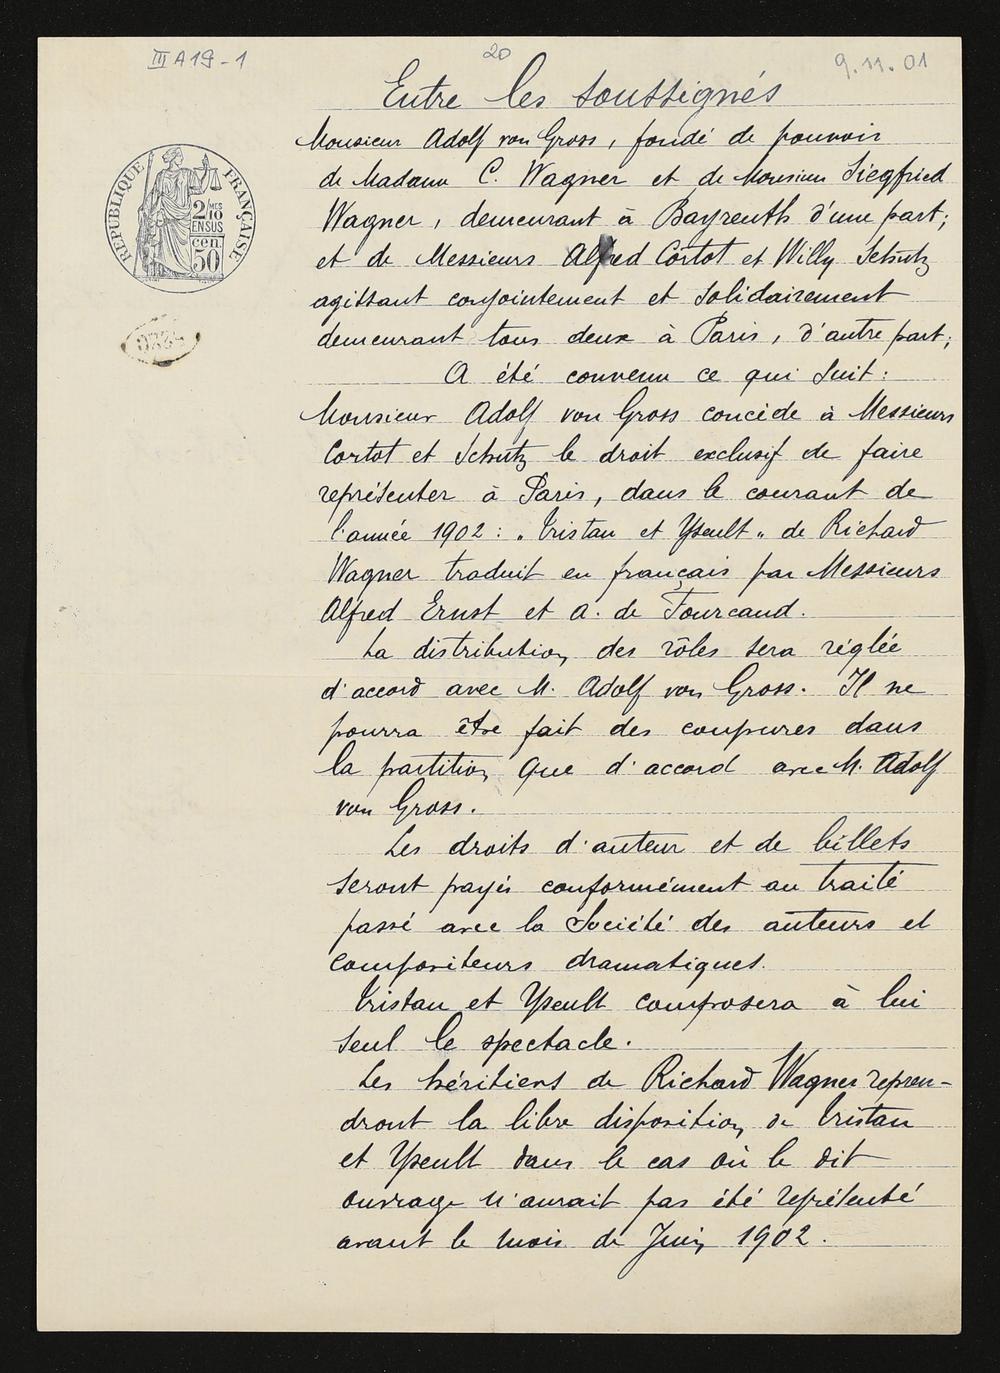 III A 19 - 1
20
9.11.01
Entre les soussignés
Monsieur Adolf von Gross, fondé de pouvoir
de Madame C. Wagner et de Monsieur Siegfried
Wagner, demeurant à Bayreuth d'une part;
et de Messieurs Alfred Cortot et Willy Schutz
agissant conjointement et solidairement
demeurant tous deux à Paris, d'autre part;
A été convenu ce qui suit:
Monsieur Adolf von Gross concède à Messieurs
Cortot et Schutz le droit exclusif de faire
représenter à Paris, dans le courant de
l'année 1902: "Tristan et Yseult" de Richard
Wagner traduit en français par Messieurs
Alfred Ernst et a. de Fourcaud.
La distribution des rôles sera réglée
d'accord avec M. Adolf von Gross. Il ne
pourra être fait des coupures dans
la partition que d'accord avec M. Adolf
von Gross.
Les droits d'auteur et de billets
seront payés conformément au traité
passé avec la Société des auteurs et
compositeurs dramatiques.
Tristan et Yseult composera à lui
seul le spectacle.
Les héritiers de Richard Wagner repren-
dront la libre disposition de Tristan
et Yseult dans le cas où le dit
ouvrage n'aurait pas été représenté
avant le mois de Juin 1902.
RÉPUBLIQUE FRANÇAISE
2 MES
10
EN SUS
cen.
50